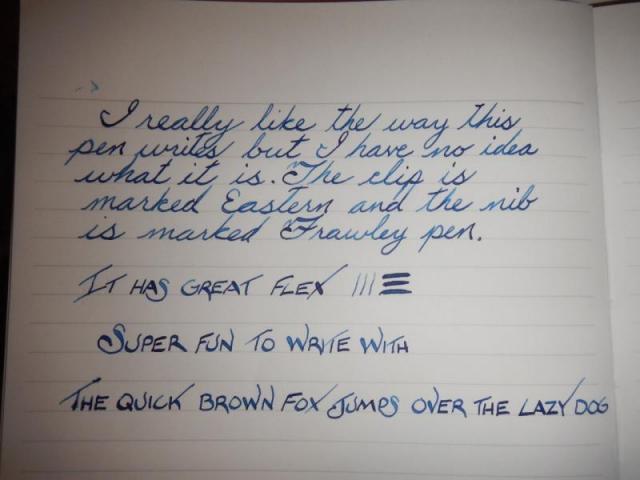 I really like the way this
pen writes but I have no idea
what it is. The clip is
marked Eastern and the nib
is marked Frawley pen.
IT HAS GREAT FLEX
SUPER FUN TO WRITE WITH
THE QUICK BROWN FOX JUMPS OVER THE LAZY DOG